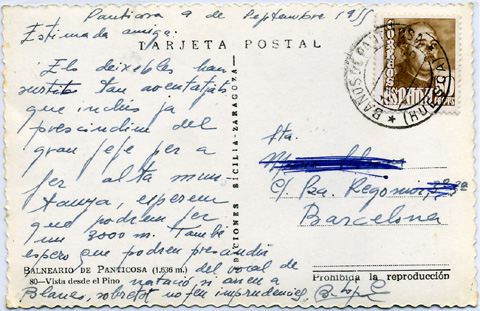 Panticosa 9 de Septembre 1955
Estimada amiga:
TARJETA POSTAL
Els deixebles han
sortit tan aventatjats
que inclús ja
prescindim del
gran jefe per a
fer alta mun
tanya, esperem
que podrem fer
un 3000 m. També
espero que podreu prescindir
del vocal de
natació, si aneu a
Blanes, sobretot no feu imprudencies,
BALNEARIO DE PANTICOSA (1.636 m.)
80—Vista desde el Pino
EDICIONES SICILIA-ZARAGOZA
CORREOS
BAÑOS DE PANTICOSA
(HUESCA)
Sta.
C/ Pza Regomir,
Barcelona
Prohibida la reproducción